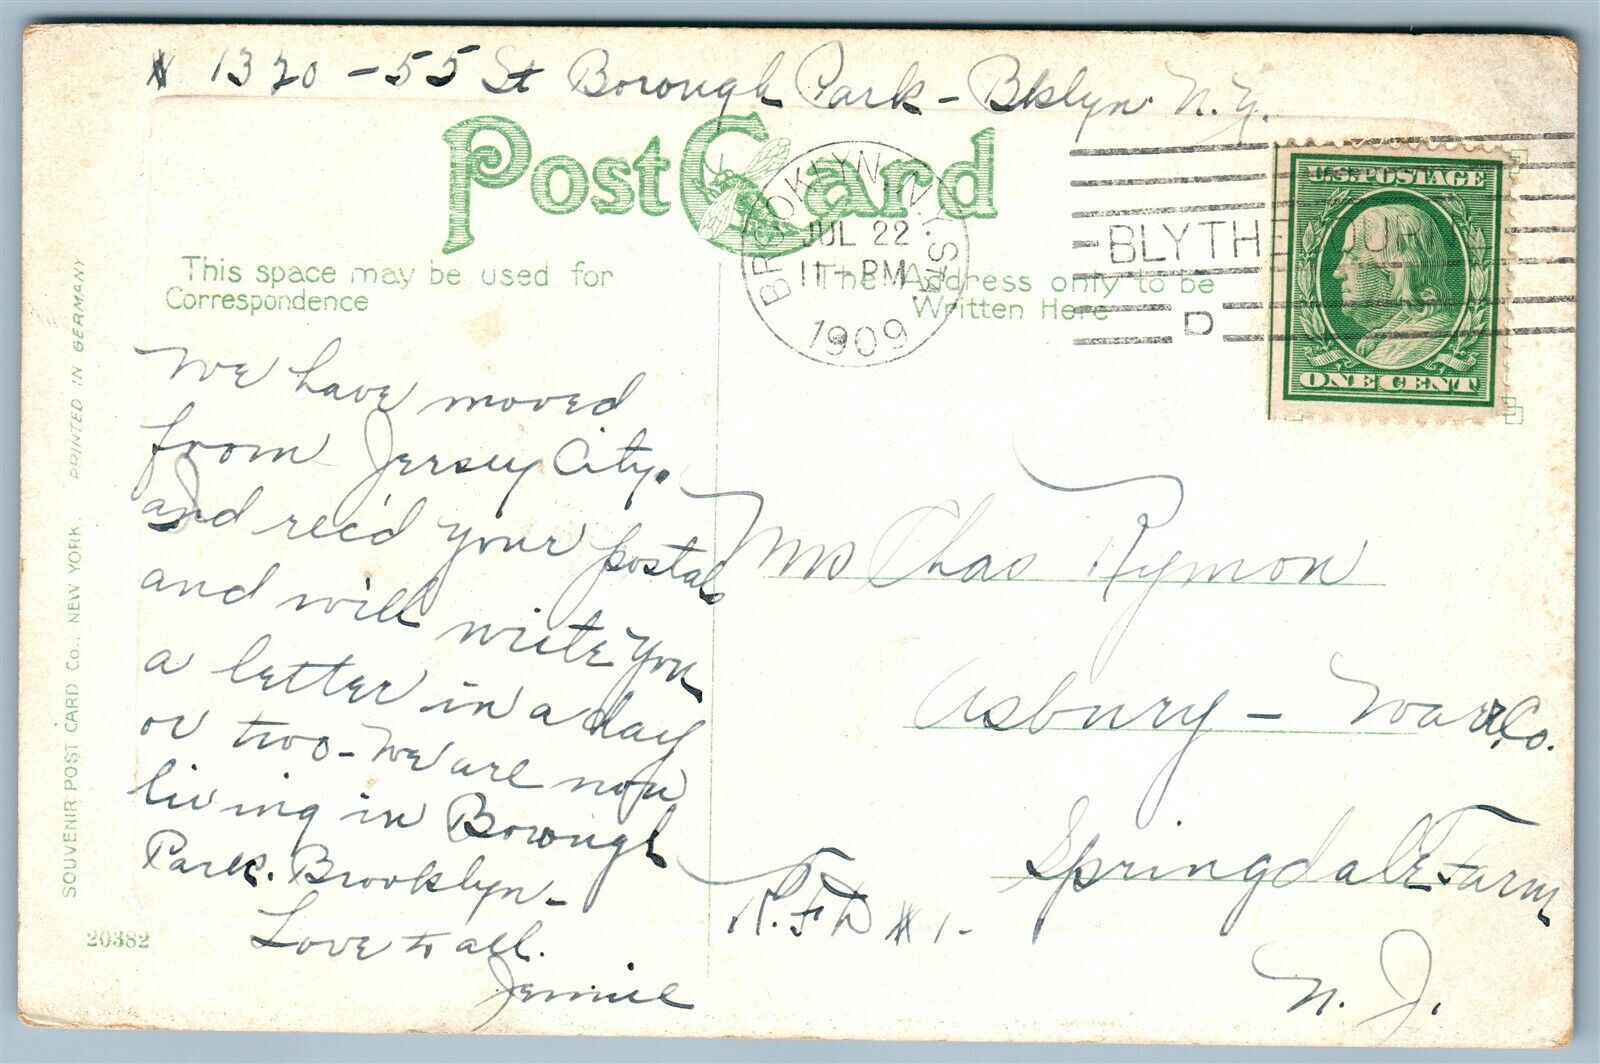 # 1320 - 55 St Borough Park - Bklyn N.Y.
Post Card
BROOKLYN, N.Y.
JUL 22
11 - PM
1909
BLYTHE
D
U.S. POSTAGE
ONE CENT
This space may be used for
Correspondence
The Address only to be
Written Here
We have moved
from Jersey City.
and rec'd your postal
and will write you
a letter in a day
or two - We are now
living in Borough
Park. Brooklyn -
Love to all.
Jennie
Mrs Chas Rymon
Asbury - Warr. Co.
Springdale Farm
R.F.D # 1 -
N. J.
SOUVENIR POST CARD CO., NEW YORK PRINTED IN GERMANY
20382